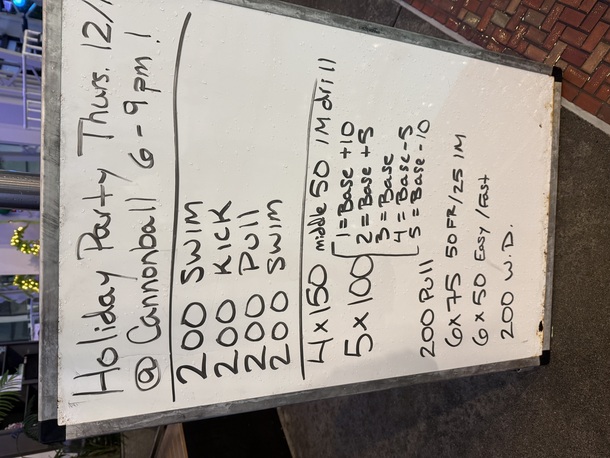 Holiday Party Thurs. 12/
@ Cannonball 6-9pm!
200 SWIM
200 KICK
200 PULL
200 SWIM
4x150 middle 50 IM drill
5x100
1=Base +10
2=Base +5
3=Base
4=Base-5
5=Base-10
200 PULL
6x75 50FR/25 IM
6x50 Easy/Fast
200 W.D.